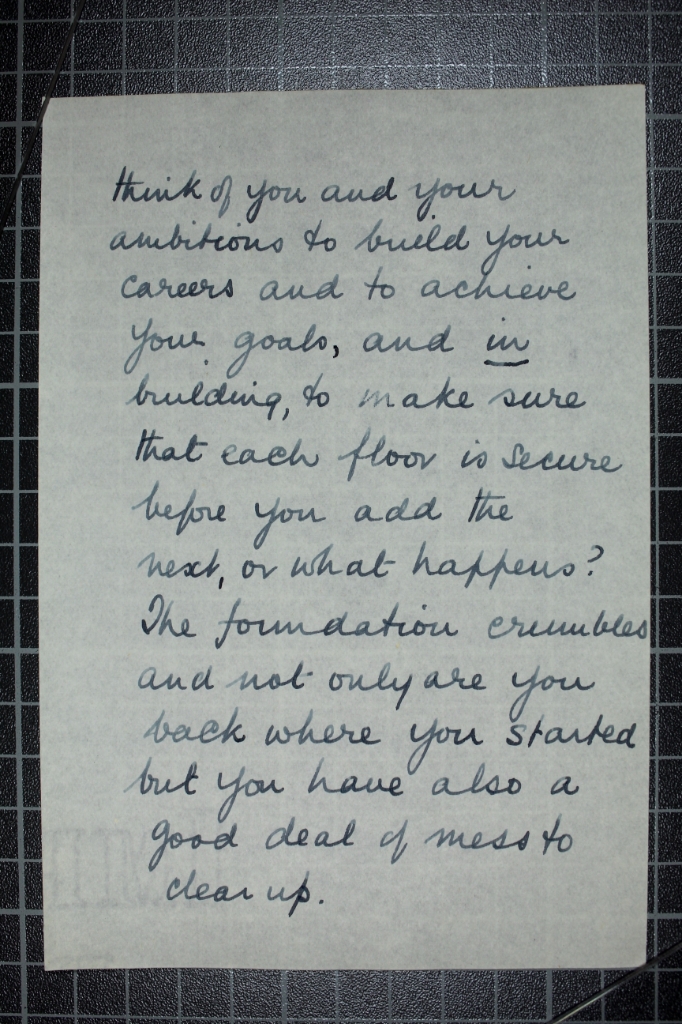 think of you and your
ambitions to build your
careers and to achieve
your goals, and in
building, to make sure
that each floor is secure
before you add the
next, or what happens?
The foundation crumbles
and not only are you
back where you started
but you have also a
good deal of mess to
clear up.